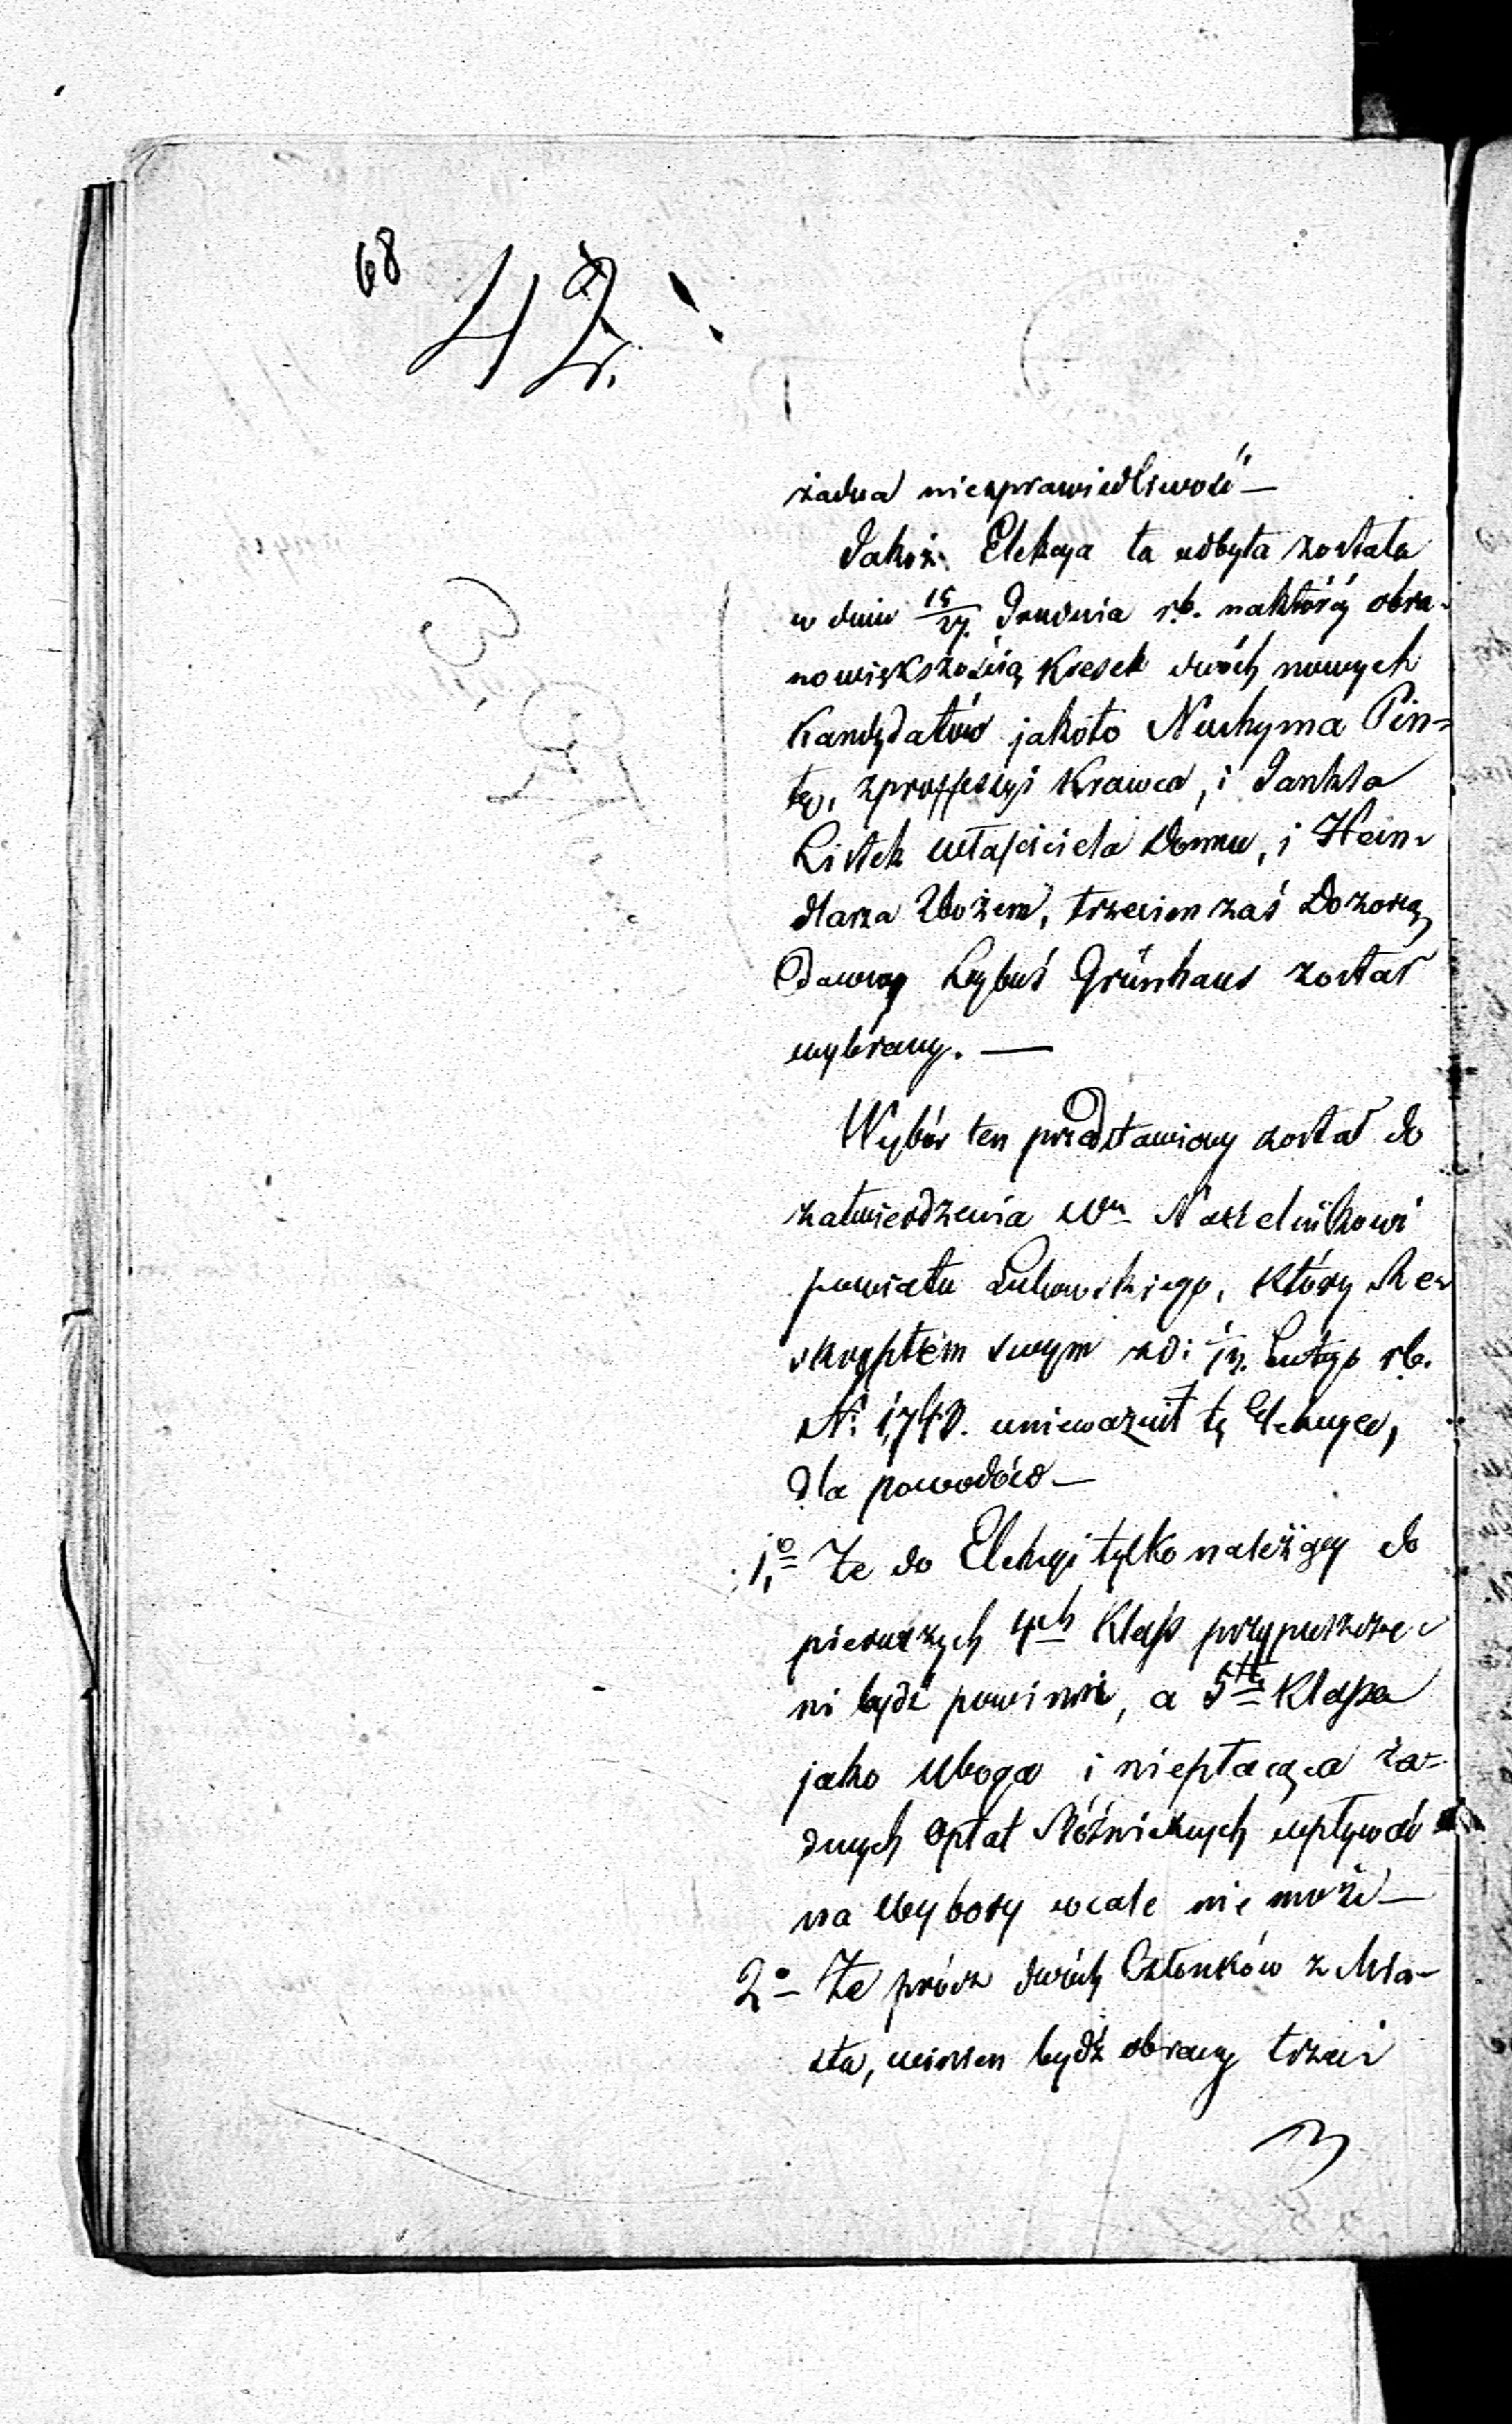 68
42.
żadna niesprawiedliwość —
Jakoż Elekcya ta odbyta została
w dniu 15/27. Grudnia r.b. naktóréj obra-
no większością Kresek dwóch nowych
Kandydatów jakoto Nuchyma Pin-
tę, zproffessyi Krawca, i Jankla
Listek właściciela Domu, i Hein-
dlarza Zbożem, trzecim zaś Dozorcą
Dawny Leybuś Grünhaus został
wybrany. —
Wybór ten przedstawiony został do
zatwierdzenia Wu Naczelnikowi
powiatu Łukowskiego, który Re-
skryptem swym zd: Lutego r.b.
N: 1,740. unieważnił tę Elekcyę,
dla powodów —
1o Że do Elekcyi tylko należący do
pierwszych 4ch Klass przypuszcze-
ni bydź powinni, a 5ta Klassa
jako Uboga i niepłacąca ża-
dnych Opłat Bóźnicznych wpływać
na Wybory wcale nie może —
2o Że prócz dwóch Członków z Mia-
sta, winien bydź obrany trzeci